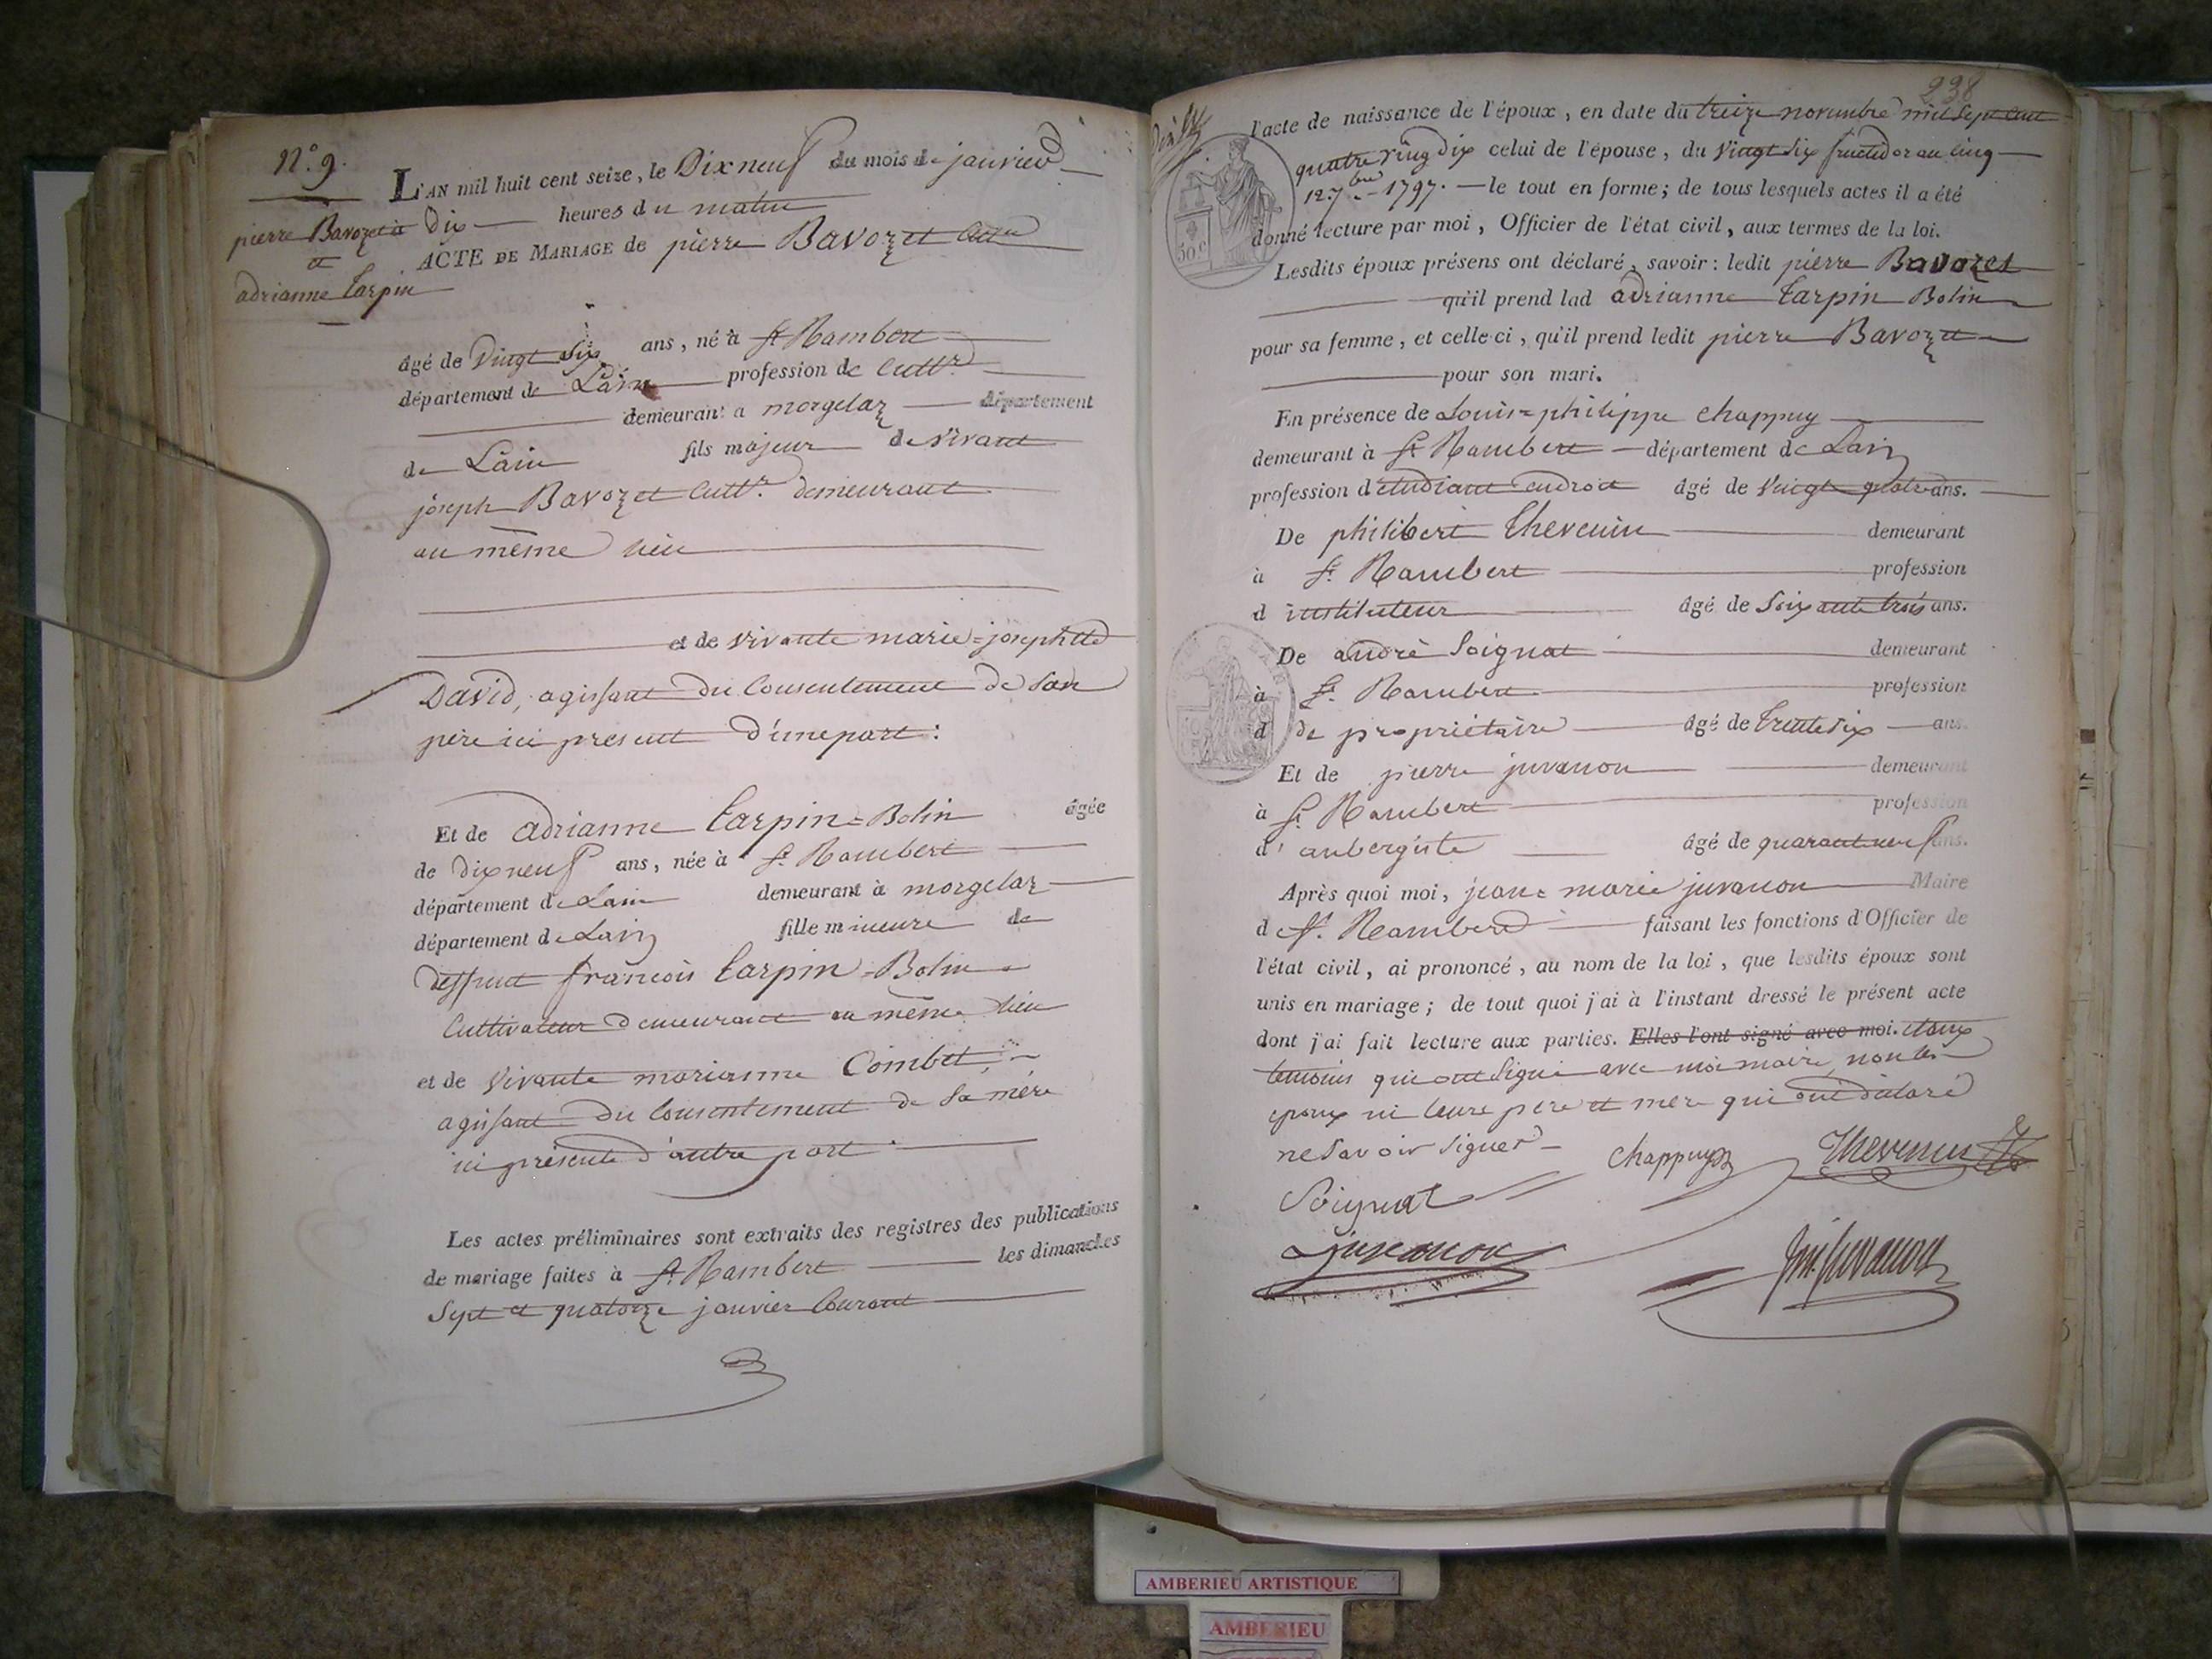 N.° 9.
pierre Bavozet
et
adrianne Tarpin
L'AN mil huit cent seize, le Dix neuf du mois de janvier
à Dix heures du matin
ACTE DE MARIAGE de pierre Bavozet
âgé de Vingt Six ans, né à St Rambert
département de Lain profession de Cultr.
demeurant a morgelaz département
de Lain fils majeur de vivant
joseph Bavozet Cultr. demeurant
au même lieu
et de vivante marie=josephtte
David, agissant du Consentement de Son
père ici present d'une part:
Et de adrianne Tarpin=Bolin âgée
de dix neuf ans, née à St. Rambert
département de Lain demeurant à morgelaz
département de Lain fille mineure de
deffunt françois Tarpin=Bolin
Cultivateur demeurant au même lieu
et de vivante marianne Combet,
agissant du Consentement de Sa mère
ici présente d'autre part.
Les actes préliminaires sont extraits des registres des publications
de mariage faites à St. Rambert les dimanches
Sept et quatorze janvier Courant
238
l'acte de naissance de l'époux, en date du treize novembre mil Sept cent
quatre ving dix celui de l'épouse, du Vingt Six fructidor an Cinq
12. 7.bre 1797. le tout en forme; de tous lesquels actes il a été
donné lecture par moi, Officier de l'état civil, aux termes de la loi.
50 c
Lesdits époux présens ont déclaré, savoir: ledit pierre Bavozet
qu'il prend lad adrianne Tarpin Bolin
pour sa femme, et celle-ci, qu'il prend ledit pierre Bavozet
pour son mari.
En présence de Louis=philippe Chappuy
demeurant à St Rambert département de Lain
profession d'étudiant endroit âgé de Vingt quatre ans.
De philibert Thevenin demeurant
à St. Rambert profession
d instituteur âgé de Soixante trois ans.
De andré Soignat demeurant
à St. Rambert profession
d de propriétaire âgé de Trente Six ans.
Et de pierre juvanon demeurant
à St. Rambert profession
d' aubergiste âgé de quarante neuf ans.
Après quoi moi, jean=marie juvanon Maire
de St. Rambert faisant les fonctions d'Officier de
l'état civil, ai prononcé, au nom de la loi, que lesdits époux sont
unis en mariage; de tout quoi j'ai à l'instant dressé le présent acte
dont j'ai fait lecture aux parties. Elles l'ont signé avec moi.
temoins qui ont Signé avec moi maire, non les
epoux ni leurs pere et mere qui ont déclaré
ne Savoir Signer
Chappuy Thevenin
Soignat
Juvanon jm. juvanon
AMBERIEU ARTISTIQUE
AMBERIEU